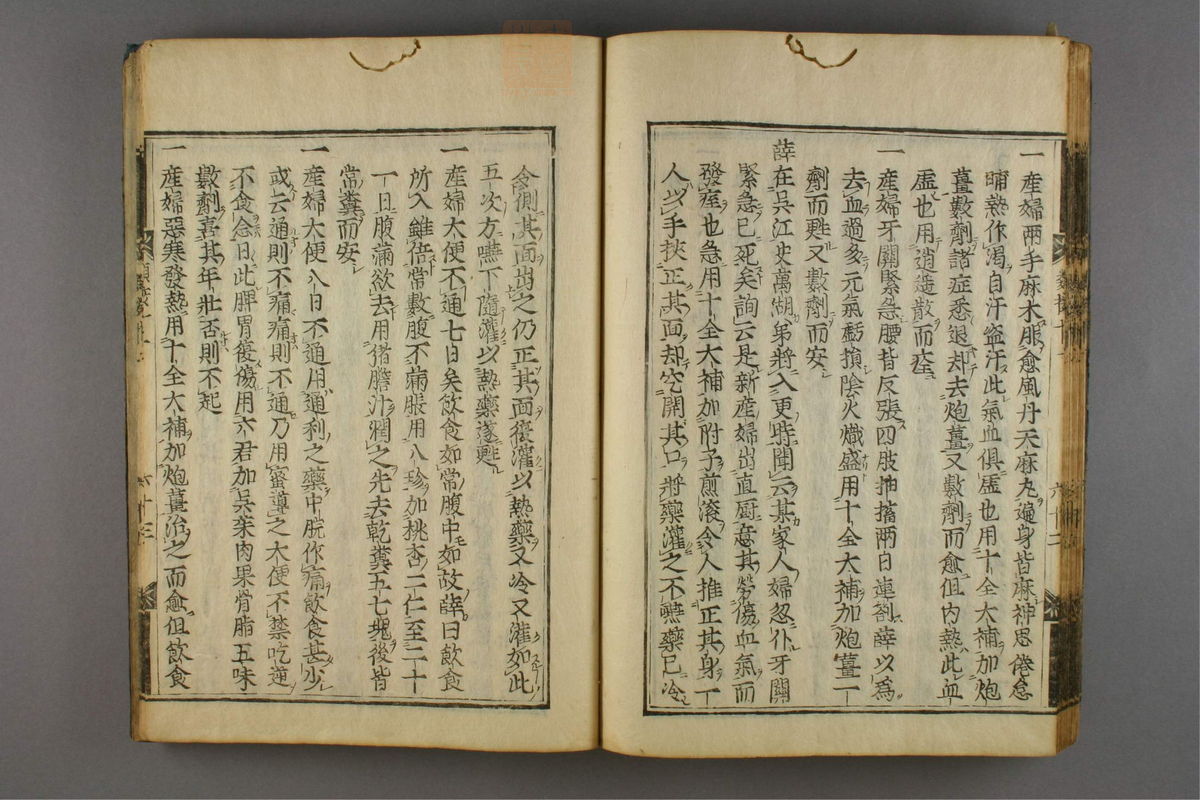 一產婦兩手麻木服愈風丹天麻丸遍身皆麻神思倦怠
晡熱作渴自汗盜汗此氣血俱虛也用十全大補加炮
薑數劑諸症悉退却去炮薑又數劑而愈但內熱此血
虛也用逍遙散而痊
一產婦牙關緊急腰背反張四肢抽搐兩目連劄薛以爲
去血過多元氣虧損陰火熾盛用十全大補加炮薑一
劑而甦又數劑而安
薛在吳江史萬湖弟將入更時聞云某家人婦忽仆牙關
緊急已死矣詢云是新產婦出直厨意其勞傷血氣而
發痓也急用十全大補加附子煎滾令人推正其身一
人以手挾正其面却空開其口將藥灌之不嚥藥已冷
六十二
令側其面出之仍正其面復灌以熱藥又冷又灌如此
五次方嚥下隨灌以熱藥遂甦
一產婦大便不通七日矣飲食如常腹中如故薛曰飲食
所入雖倍常數腹不滿脹用八珍加桃杏二仁至二十
一日腹滿欲去用猪膽汁潤之先去乾糞五七塊後皆
常糞而安
一產婦大便八日不通用通利之藥中脘作痛飲食甚少
或云通則不痛痛則不通乃用蜜導之大便不禁吃逆
不食余曰此脾胃復傷用六君加吳茱肉果骨脂五味
數劑喜其年壯否則不起
一產婦惡寒發熱用十全大補加炮薑治之而愈但飲食
六十三